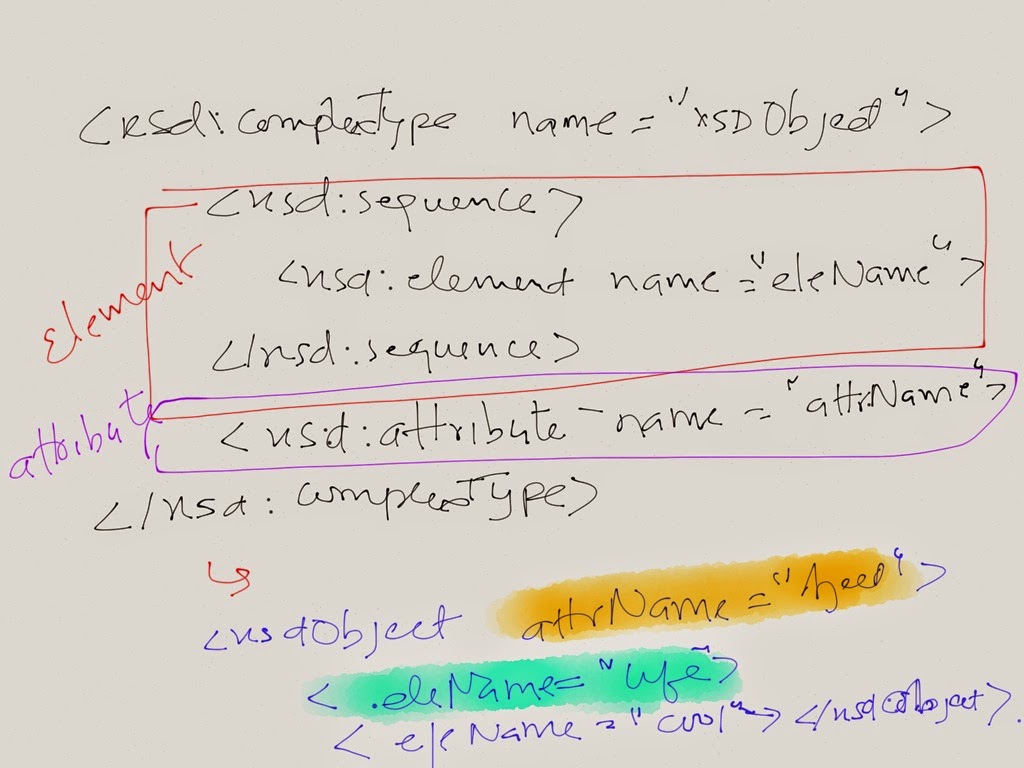 <xsd:complexType name="xsDObject">
<xsd:sequence>
<xsd:element name="eleName">
</xsd:sequence>
Element
<xsd:attribute name="attrName">
attribute
</xsd:complexType>
<xsdObject attrName=">
<eleName="life">
<eleName="cool"> </xsdObject>.